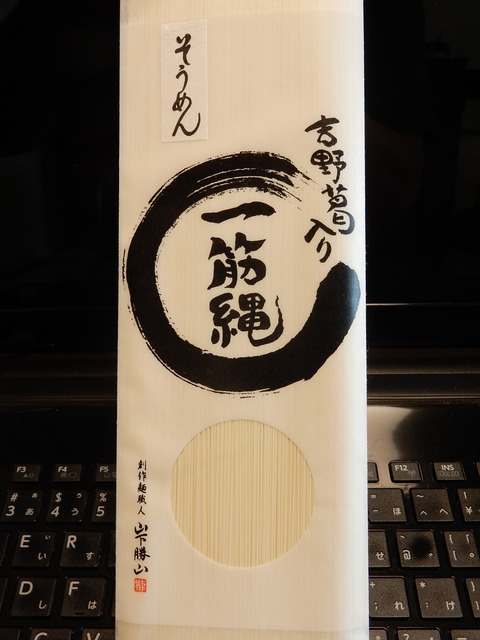 そうめん
吉野葛入り
一筋縄
創作麺職人 山下勝山
F3
F4
F5
F12
INS
# ぁ
3 あ
$ ぅ
4 う
% ぇ
5 え
E い
R す
D し
F は
C
V
G